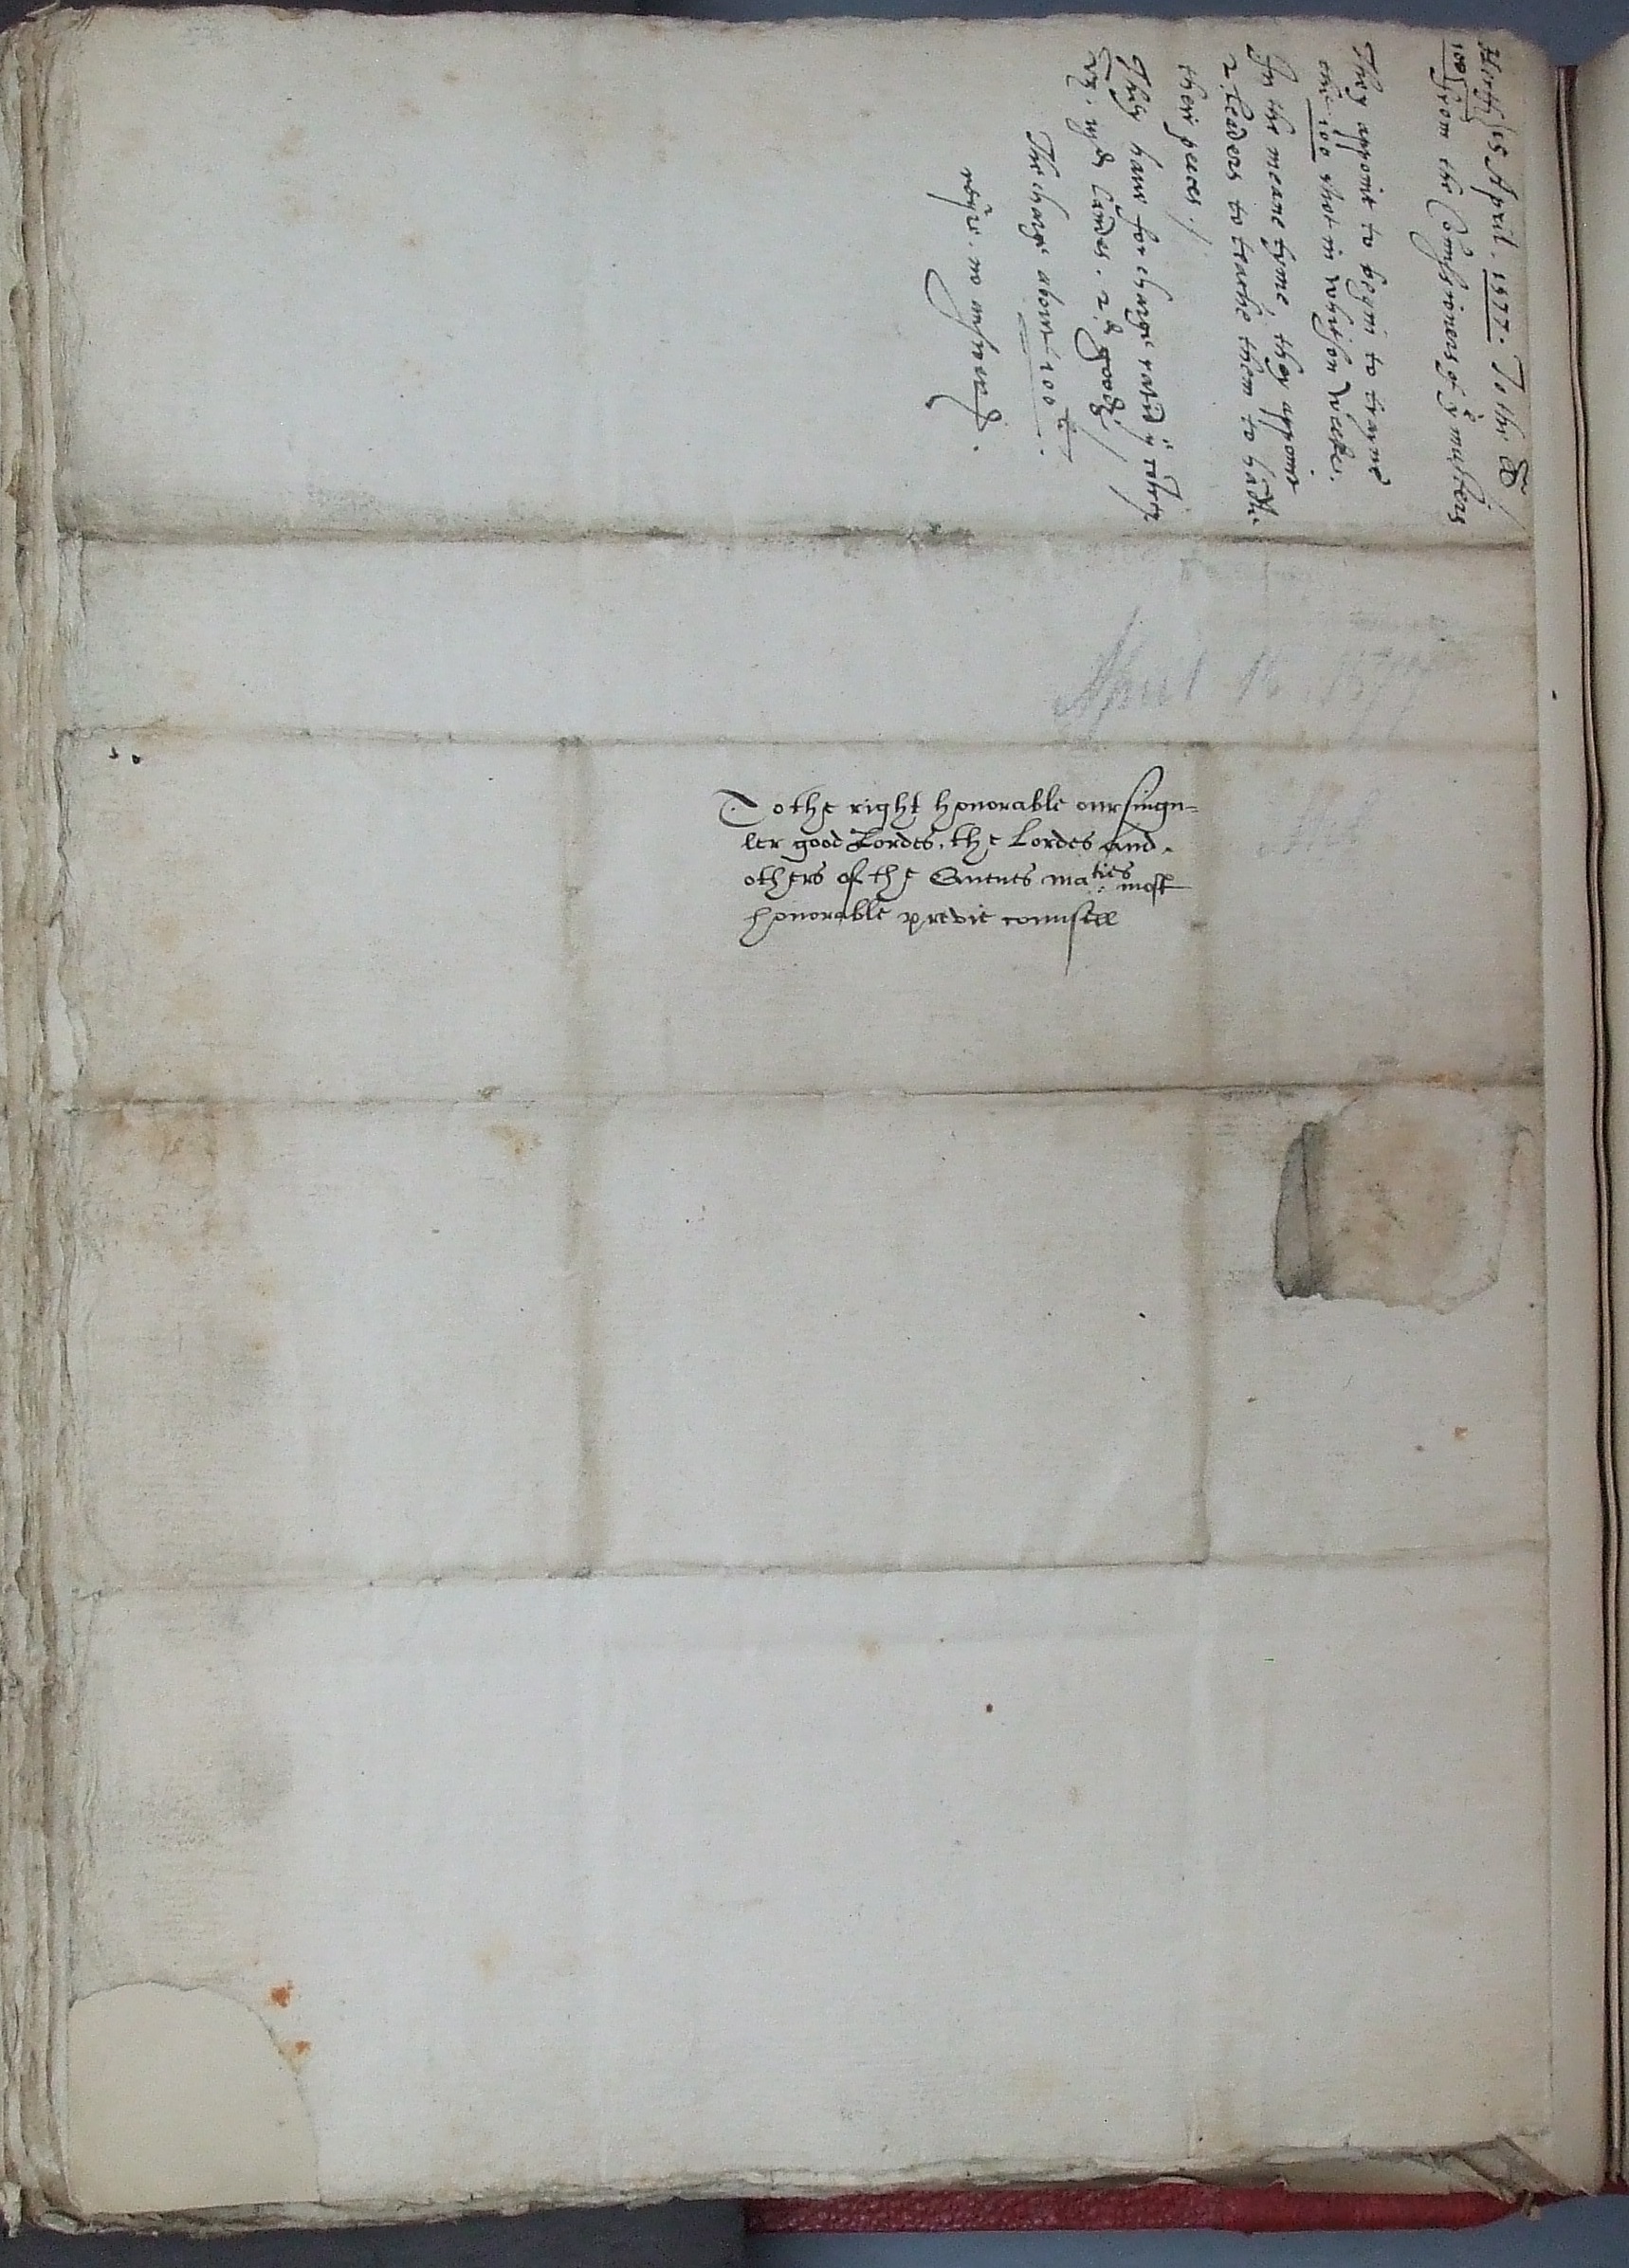 15 April . 1577 . To the
100 from the Comissioners of ye musters
They appoint to begin to trayne
the 100 shot in whitson weeke.
In the meane tyme, they appoint
2. leaders to teache them to handle
their peces ./
They haue for charge rated ye
landes . 2d goodes /
The charge aboue 100 li .
requir . no answer .
April 15. 1577
To the right honorable our singu=
ler good Lordes, the Lordes and
others of the Quenes maties most
honorable previe counsell